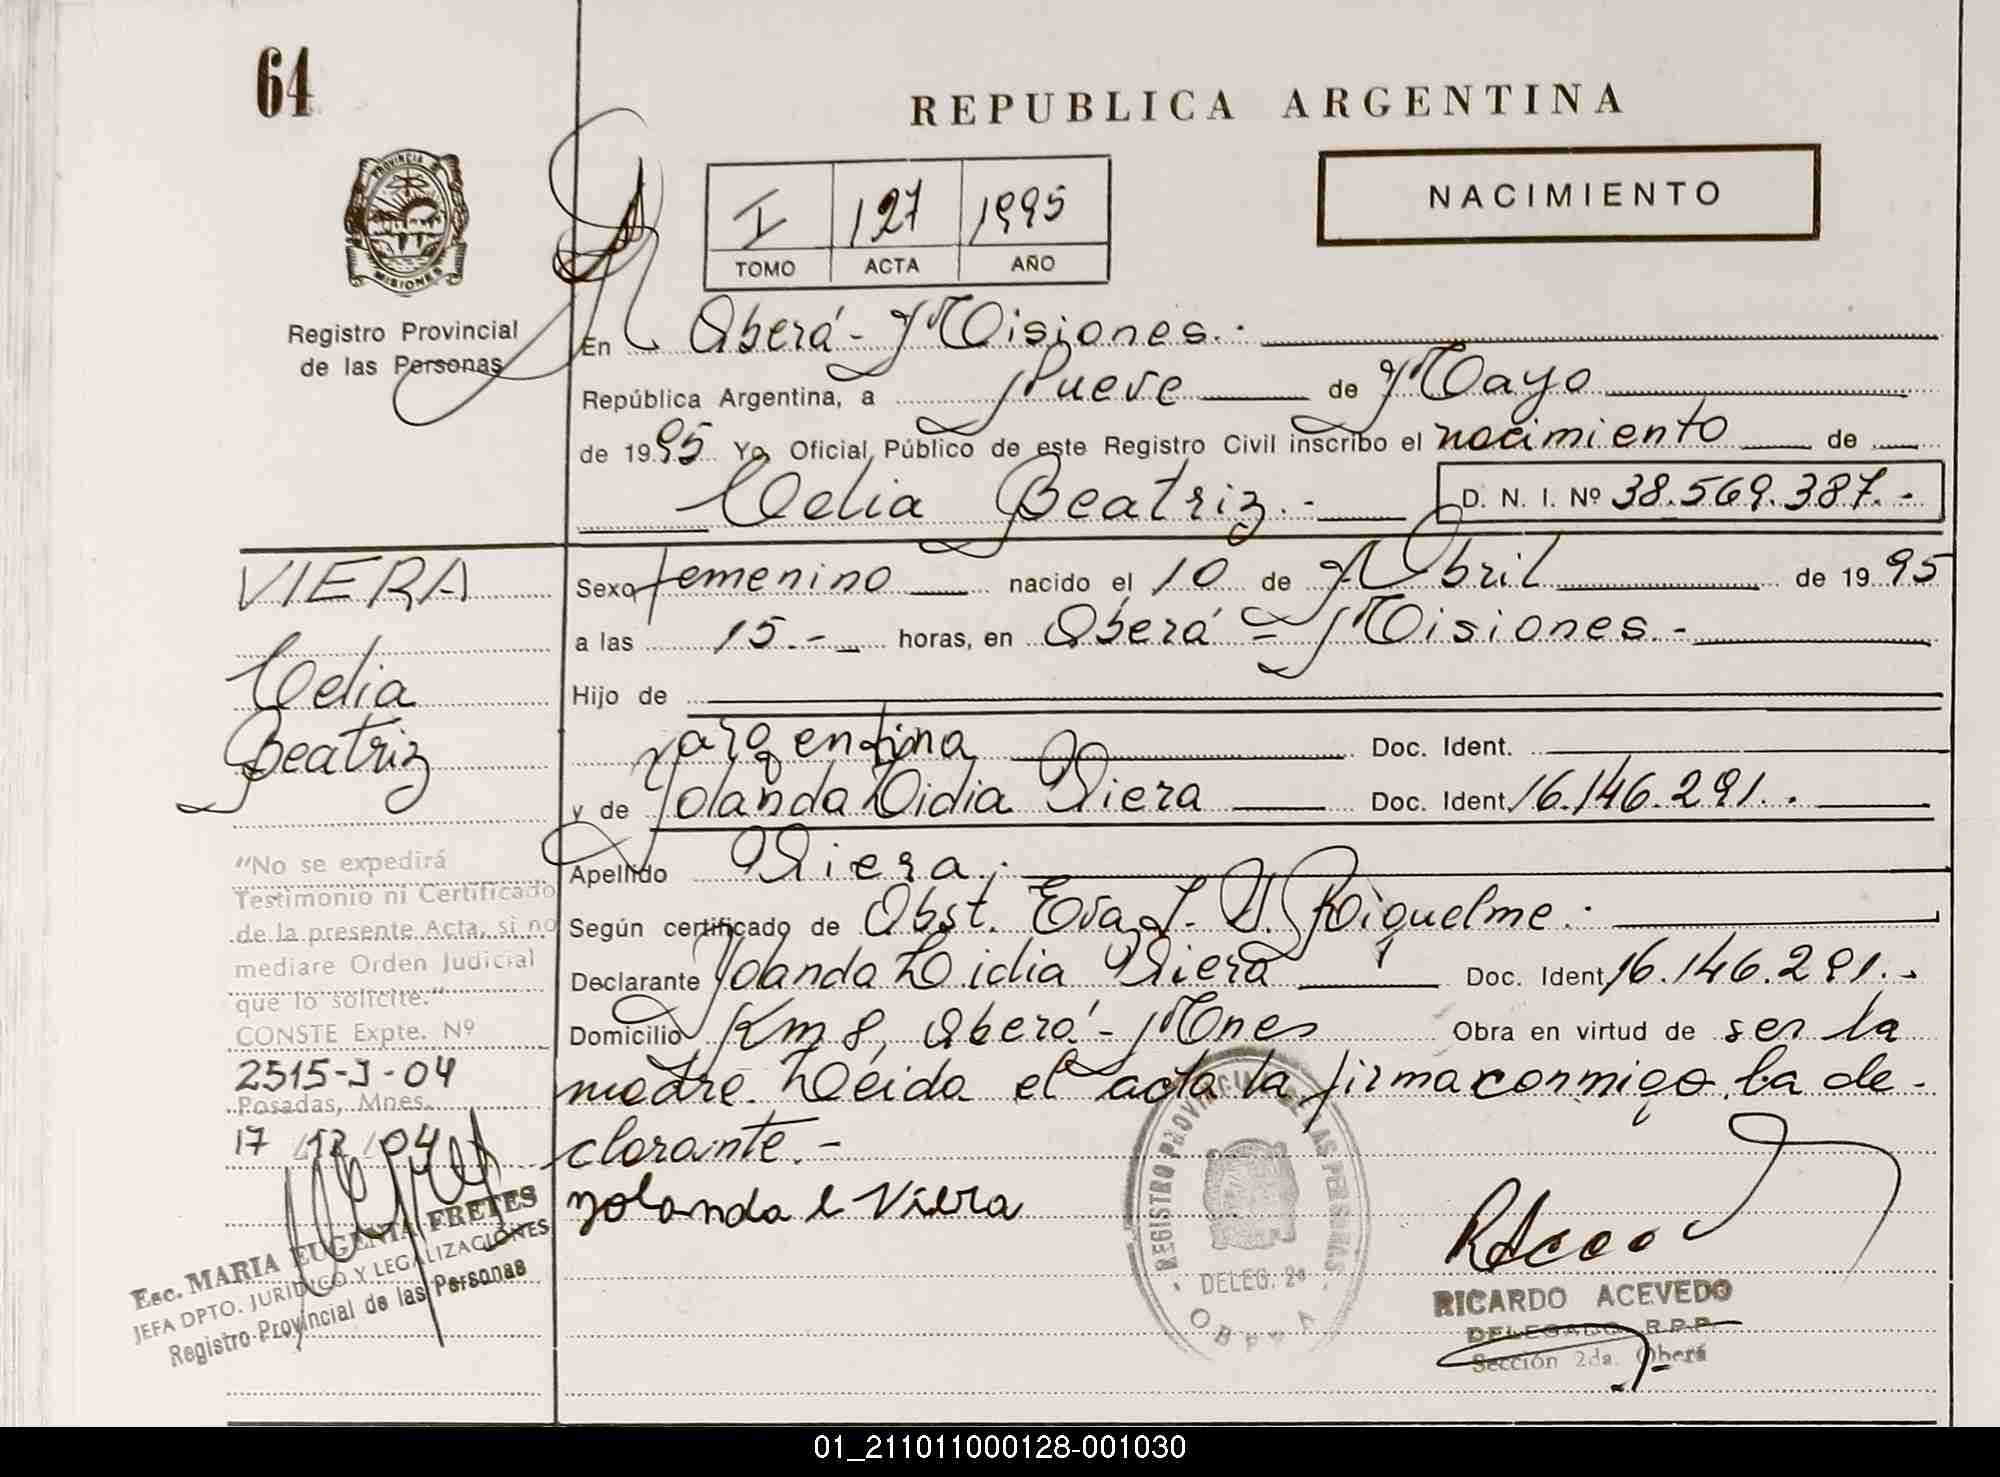 64
REPUBLICA ARGENTINA
PROVINCIA DE
MISIONES
Registro Provincial
de las Personas
I 127 1995
TOMO ACTA AÑO
NACIMIENTO
En Oberá - Misiones.-
República Argentina, a Nueve de Mayo
de 1995 Yo, Oficial Público de este Registro Civil inscribo el nacimiento de
Celia Beatriz.- D. N. I. Nº 38.569.387.-
VIERA
Celia
Beatriz
Sexo femenino nacido el 10 de Abril de 1995
a las 15.- horas, en Oberá = Misiones.-
Hijo de
argentina Doc. Ident.
y de Yolanda Lidia Viera Doc. Ident. 16.146.291.-
Apellido Viera.-
Según certificado de Obst. Eva I. V. Riquelme.-
Declarante Yolanda Lidia Viera Doc. Ident. 16.146.291.-
Domicilio Km 8, Oberá - Mnes Obra en virtud de ser la
madre. Leida el acta la firma conmigo la de-
clarante.-
Yolanda L Viera
"No se expedirá
Testimonio ni Certificado
de la presente Acta, si no
mediare Orden Judicial
que lo solicite."
CONSTE Expte. Nº
2515-J-04
Posadas, Mnes.
17 / 12 / 04
Esc. MARIA EUGENIA FRETES
JEFA DPTO. JURIDICO Y LEGALIZACIONES
Registro Provincial de las Personas
REGISTRO PROVINCIAL DE LAS PERSONAS
DELEG. 2ª
OBERA
RICARDO ACEVEDO
DELEGADO R.P.P.
Sección 2da. Oberá
01_211011000128-001030